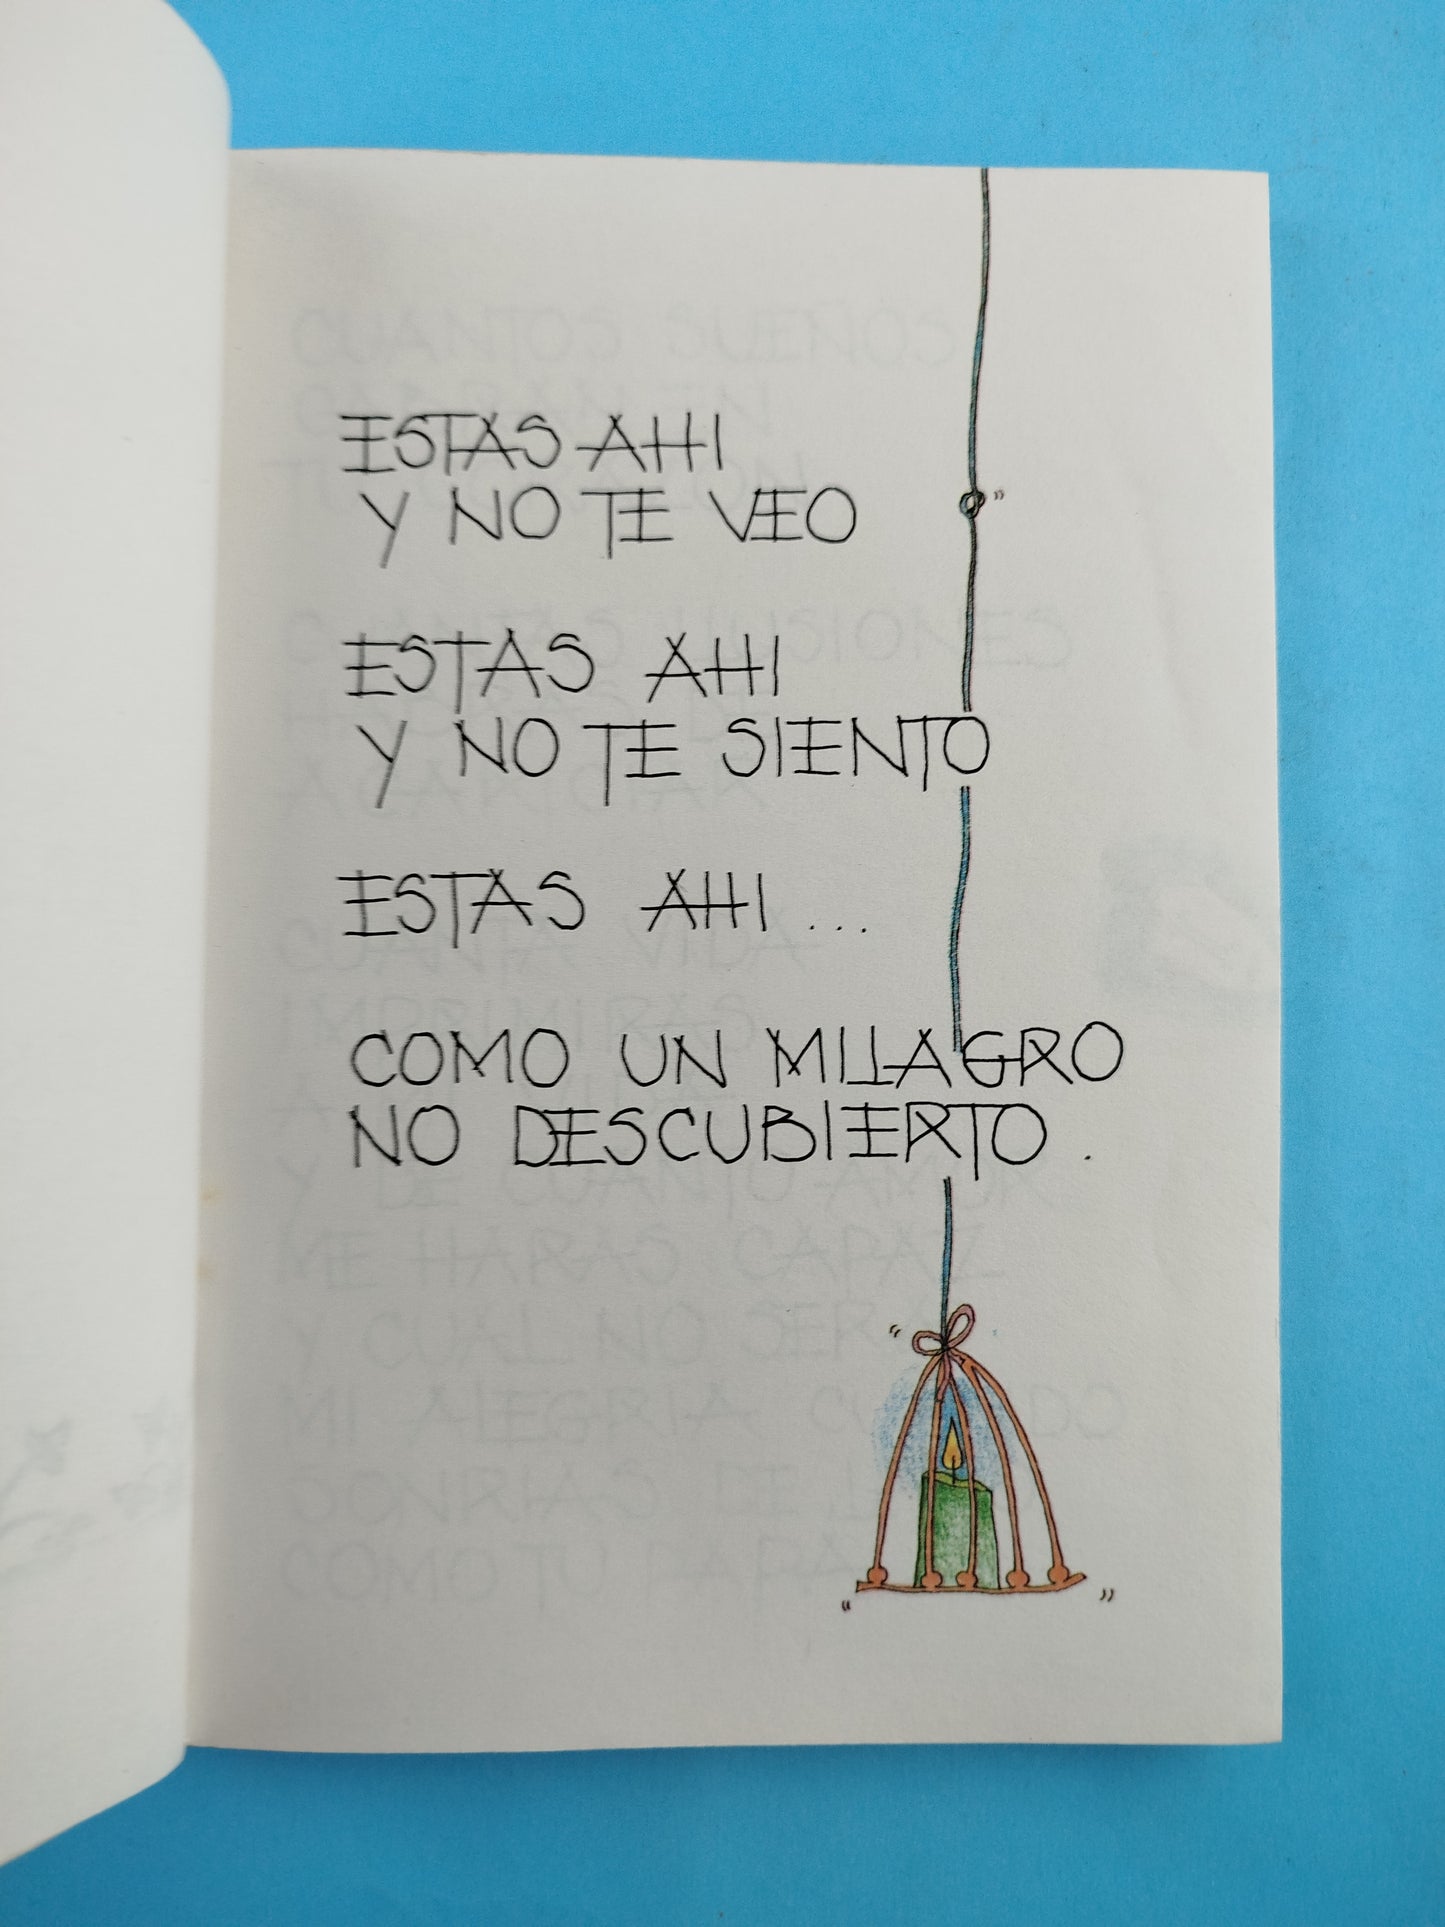 ESTAS AHI
Y NO TE VEO
ESTAS AHI
Y NO TE SIENTO
ESTAS AHI ...
COMO UN MILAGRO
NO DESCUBIERTO.